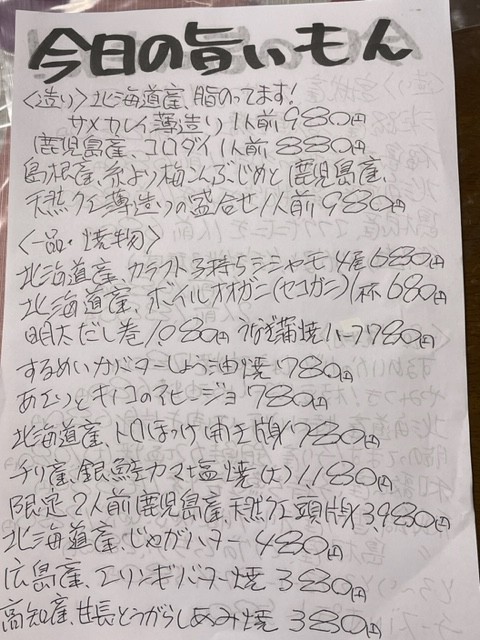 今日の旨いもん
〈造り〉北海道産、脂のってます!
サメカレイ薄造り1人前980円
鹿児島産、コロダイ1人前880円
島根産、糸より梅こんぶじめと鹿児島産、
天然クエ薄造りの盛合せ1人前980円
〈一品・焼物〉
北海道産、カラフト子持ちシシャモ4尾680円
北海道産、ボイルオオガニ(セコガニ)1杯680円
明太だし巻1,080円 うなぎ蒲焼ハーフ780円
するめイカバターしょう油焼780円
あさりとキノコのアヒージョ780円
北海道産、トロほっけ開き 780円
チリ産、銀鮭カマ塩焼(大)1,180円
限定2人前鹿児島産、天然クエ頭 3,980円
北海道産、じゃがバター480円
広島産、エリンギバター焼380円
高知産、甘長とうがらしあみ焼380円